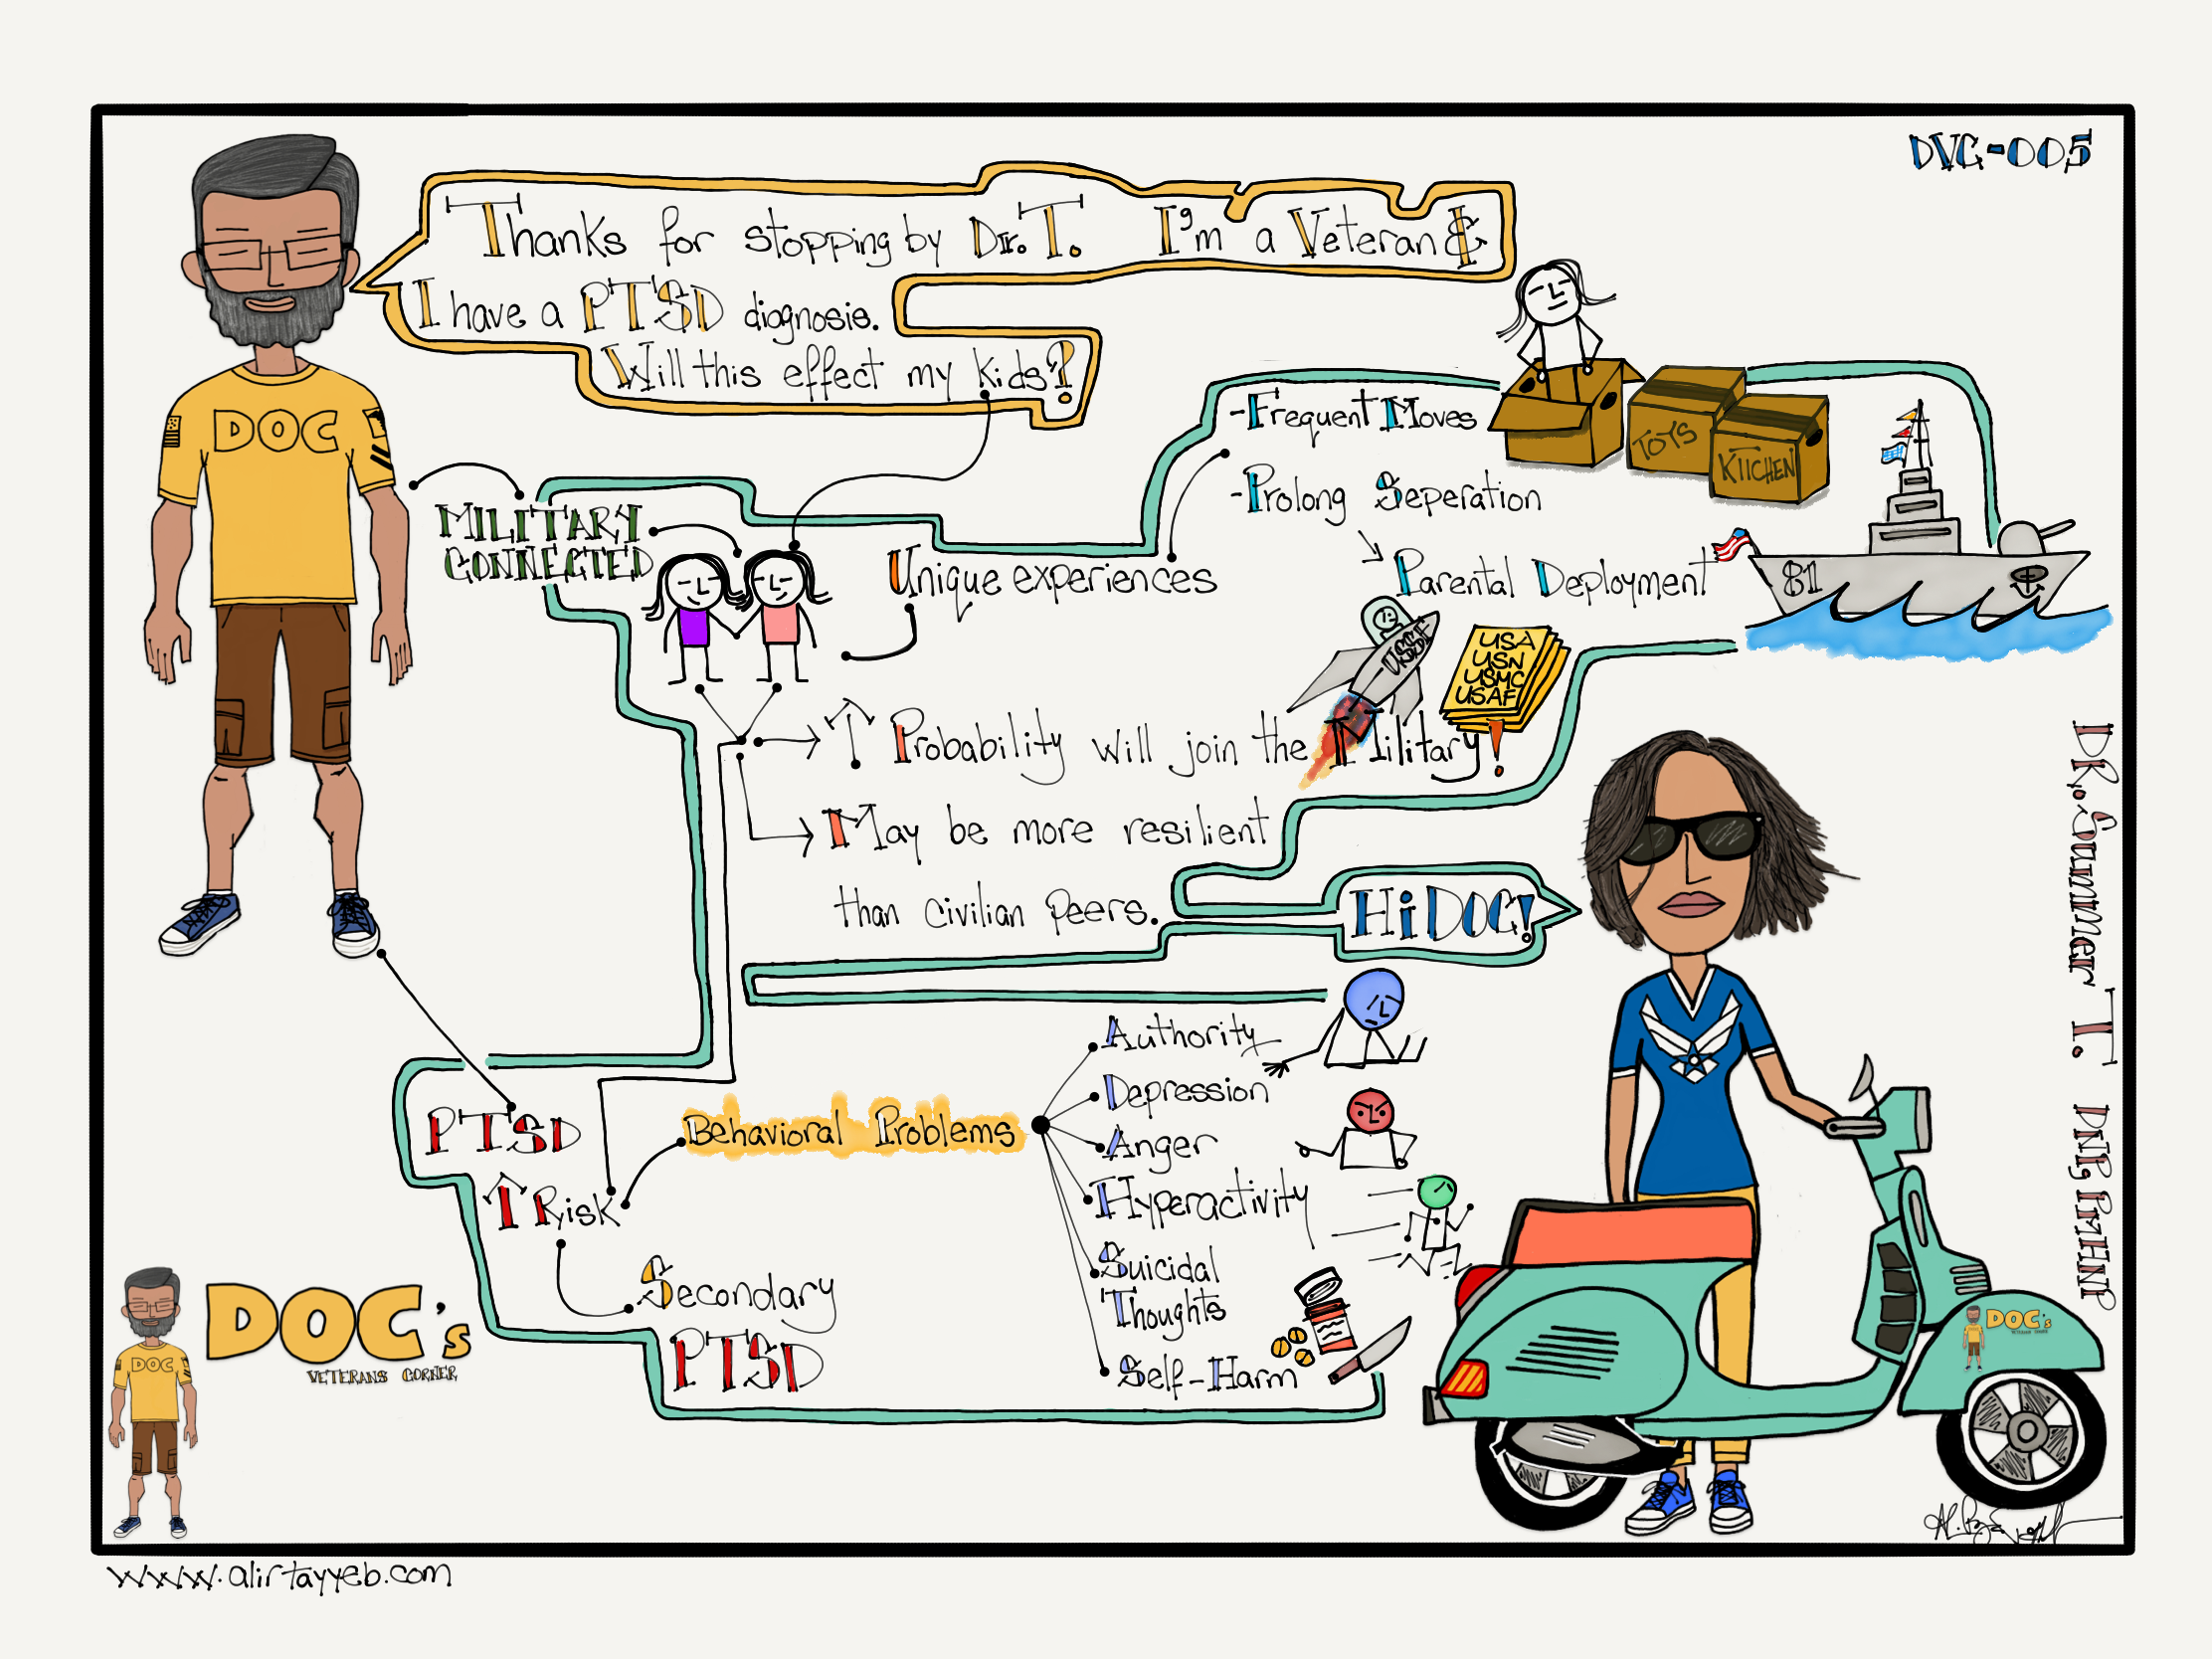 DVC-005
Thanks for stopping by Dr. T. I'm a Veteran &
I have a PTSD diagnosis.
Will this effect my kids?
DOC
MILITARY
CONNECTED
Unique experiences
-Frequent Moves
-Prolong Seperation
Parental Deployment
TOYS
KITCHEN
81
USSF
USA
USN
USMC
USAF
↑ Probability will join the Military!
May be more resilient
than civilian peers.
Hi DOC!
DR. Summer T. DNP, PMHNP
PTSD
↑ Risk
Behavioral Problems
Authority
Depression
Anger
Hyperactivity
Suicidal
Thoughts
Self-Harm
Secondary
PTSD
DOC
DOC's
VETERANS CORNER
DOC's
www.alirtayyeb.com